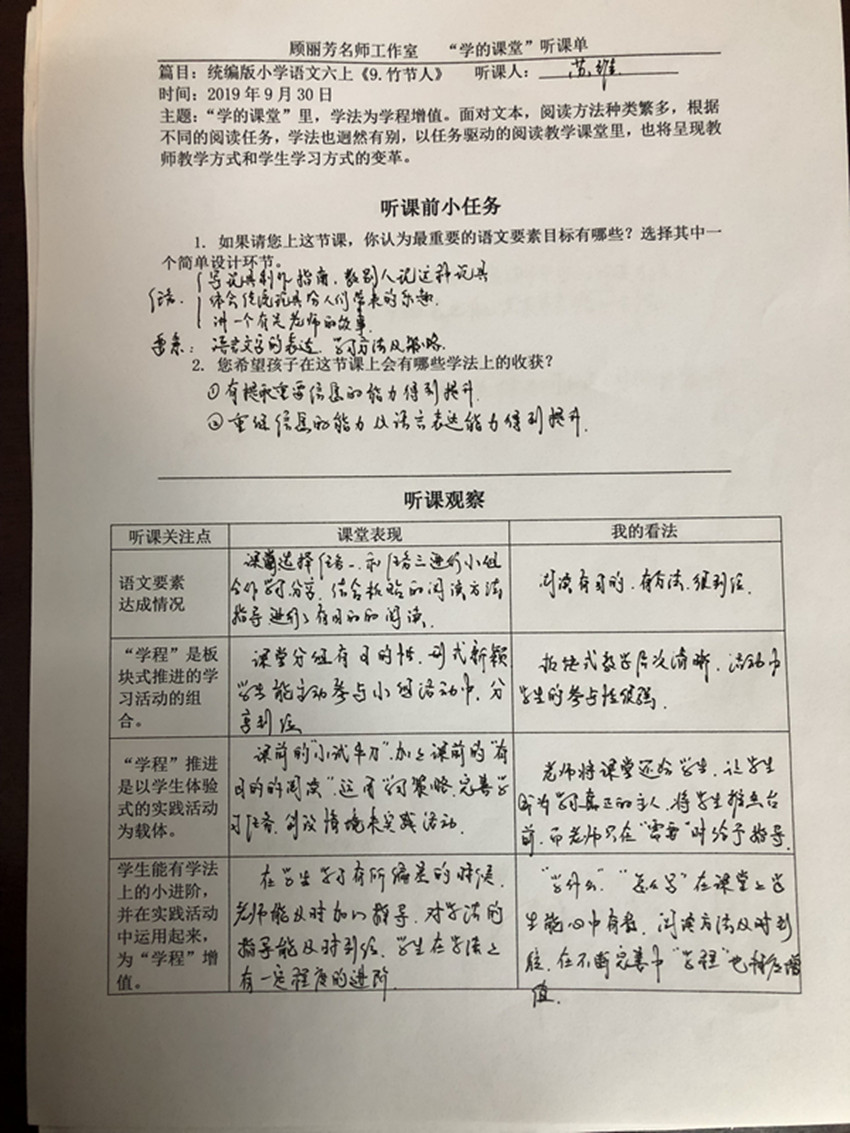 顾丽芳名师工作室 “学的课堂”听课单
篇目：统编版小学语文六上《9.竹节人》 听课人：苏维
时间：2019年9月30日
主题：“学的课堂”里，学法为学程增值。面对文本，阅读方法种类繁多，根据
不同的阅读任务，学法也迥然有别，以任务驱动的阅读教学课堂里，也将呈现教
师教学方式和学生学习方式的变革。
听课前小任务
1. 如果请您上这节课，你认为最重要的语文要素目标有哪些？选择其中一
个简单设计环节。
写玩具制作指南，教别人玩这种玩具
任务： 体会传统玩具给人们带来的乐趣.
讲一个有关老师的故事.
要素：语言文字的表达，学习方法及策略.
2. 您希望孩子在这节课上会有哪些学法上的收获？
①有提取重要信息的能力得到提升.
②重组信息的能力及语言表达能力得到提升.
听课观察
听课关注点 课堂表现 我的看法
语文要素
达成情况
课前选择任务一、和任务三进行小组
合作学习分享，结合板贴的阅读方法
指导进行有目的的阅读.
阅读有目的、有方法、很到位.
“学程”是板
块式推进的学
习活动的组
合。
课堂分组有目的性，形式新颖
学生能主动参与小组活动中，分
享到位
板块式教学层次清晰，活动中
学生的参与性很强.
“学程”推进
是以学生体验
式的实践活动
为载体。
课前的“小试牛刀”，加上课前的“有
目的的阅读”，运用学习策略，完善学
习任务，创设情境来实践活动.
老师将课堂还给学生，让学生
成为学习真正的主人，将学生推向台
前，而老师只在“需要”时给予指导.
学生能有学法
上的小进阶，
并在实践活动
中运用起来，
为“学程”增
值。
在学生学习有所偏差的时候，
老师能及时加以指导，对学法的
指导能及时到位，学生在学法上
有一定程度的进阶.
“学什么”“怎么学”在课堂上学
生能心中有数，阅读方法及时到
位，在不断完善中“学程”也相应增
值.